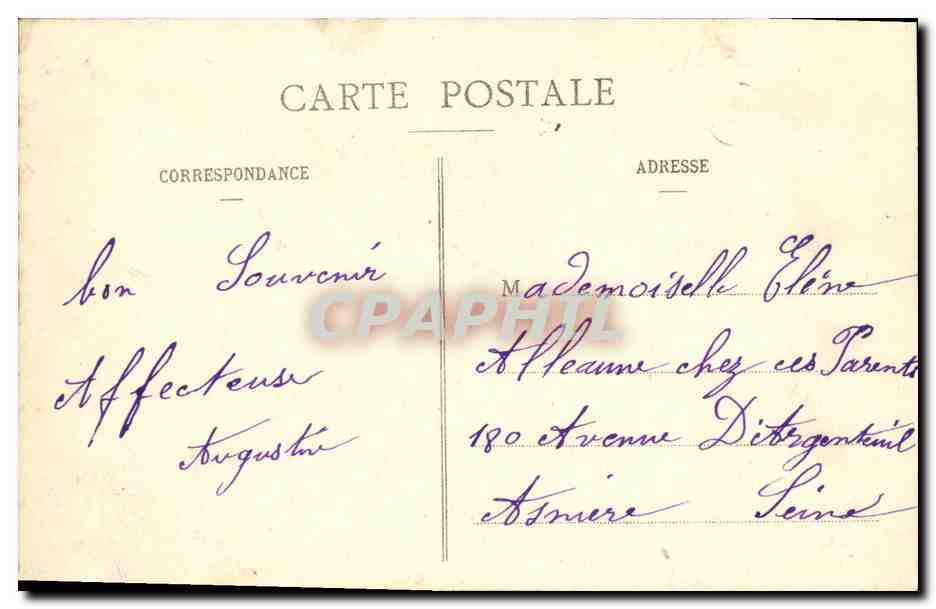 CARTE POSTALE
CORRESPONDANCE
bon Souvenir
Affecteuse
Augustin
ADRESSE
Mademoiselle Elène
Alleaune chez ces Parents
180 Avenue D'Argenteuil
Asniere Seine
CPAPHIL